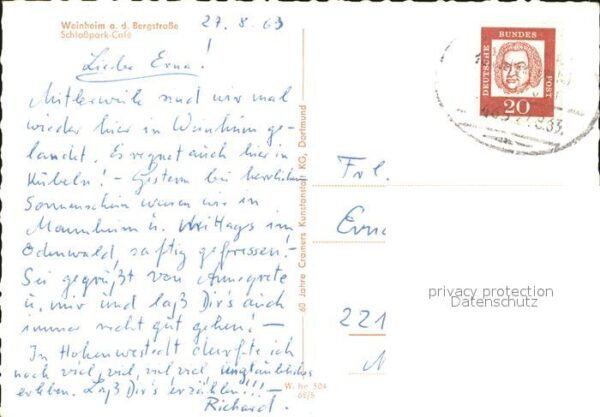 Weinheim a. d. Bergstraße
Schloßpark-Café
27.8.63
Liebe Erna!
Mittlerweile sind wir mal
wieder hier in Weinheim ge-
landet. Es regnet auch hier in
Kübeln! - Gestern bei herrlichem
Sonnenschein waren wir in
Mannheim u. mittags im
Odenwald, saftig gefressen! -
Sei gegrüßt von Annegrete
u. mir und laß Dir's auch
immer recht gut gehen! -
In Hohenwestedt durfte ich
noch viel, viel, viel viel unglaubliches
erleben. Laß Dir's erzählen!!! -
Richard.
60 Jahre Cramers Kunstanstalt KG, Dortmund
W. Nr. 504
63/5
DEUTSCHE
BUNDES
POST
20
Frl.
Erna
221
privacy protection
Datenschutz